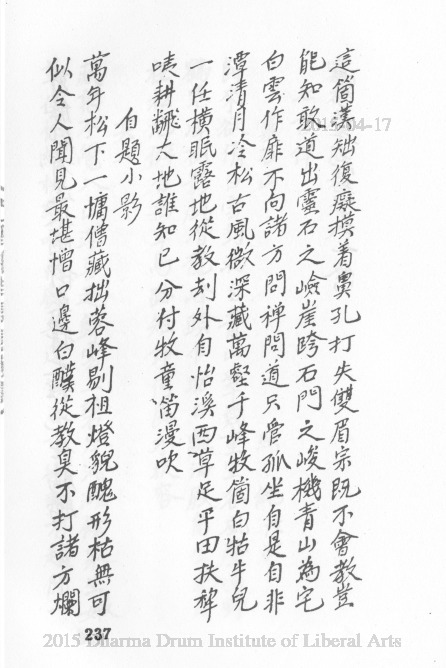 這箇漢拙復癡摸着鼻孔打失雙眉宗既不會教豈
能知敢道出靈石之嶮崖跨石門之峻機青山為宅
白雲作扉不向諸方問禅問道只管孤坐自是自非
潭清月冷松古風微深藏萬壑千峰牧箇白牯牛兒
一任橫眠露地從教刦外自怡溪西草足平田扶犂
嘵耕飜大地誰知已分付牧童笛漫吹
自題小影
萬年松下一慵僧藏拙蓉峰剔祖燈貌醜形枯無可
似令人聞見最堪憎口邊白醭從教臭不打諸方爛
237
2015-04-17
2015 Dharma Drum Institute of Liberal Arts